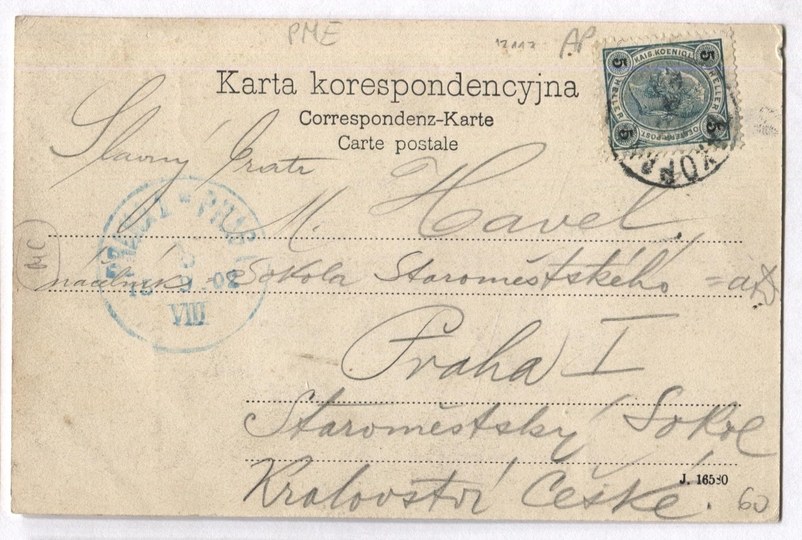 PME AP
Karta korespondencyjna
Correspondenz-Karte
Carte postale
KAIS. KOENIGL. OESTERR. POST
5 HELLER 5 HELLER 5 5
Slavný
M. Havel.
náčelník Sokola Staroměstského
Praha I
Staroměstský Sokol
Království České.
PRAHA 1 PRAG 1
02
VIII
J. 16580
60